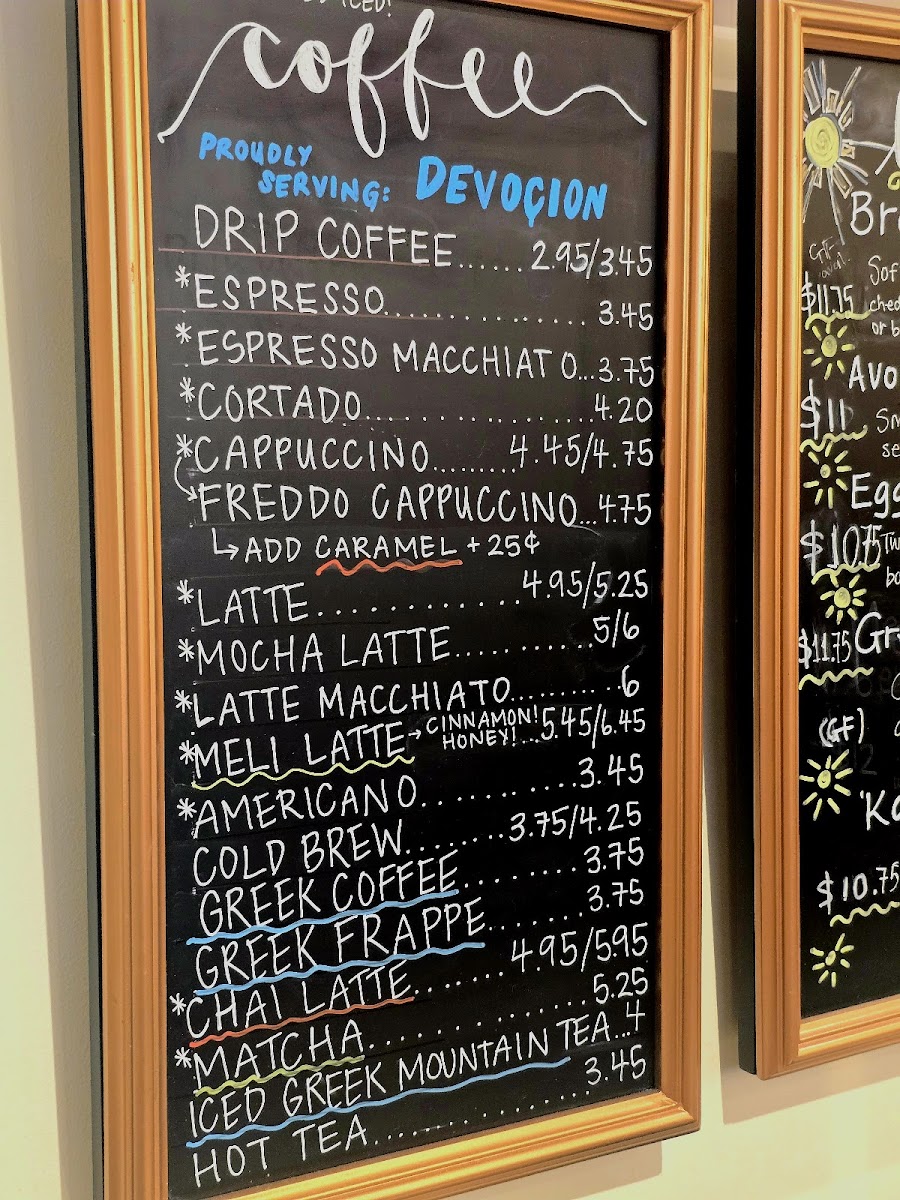 ICED!
coffee
PROUDLY
SERVING: DEVOÇION
DRIP COFFEE...... 2.95/3.45
*ESPRESSO................ 3.45
*ESPRESSO MACCHIATO...3.75
*CORTADO.................. 4.20
*CAPPUCCINO.........4.45/4.75
FREDDO CAPPUCCINO...4.75
↳ADD CARAMEL + 25¢
*LATTE.............4.95/5.25
*MOCHA LATTE...........5/6
*LATTE MACCHIATO..........6
*MELI LATTE→CINNAMON!
HONEY!...5.45/6.45
*AMERICANO...........3.45
COLD BREW........3.75/4.25
GREEK COFFEE.........3.75
GREEK FRAPPE.......3.75
*CHAI LATTE.......4.95/5.95
*MATCHA................5.25
ICED GREEK MOUNTAIN TEA...4
HOT TEA.................3.45
Br
$11.75
Sof
ched
or b
Avo
$11
Sm
se
Egg
$10.75
Tw
ba
$11.75
Gr
(GF)
Ka
$10.75